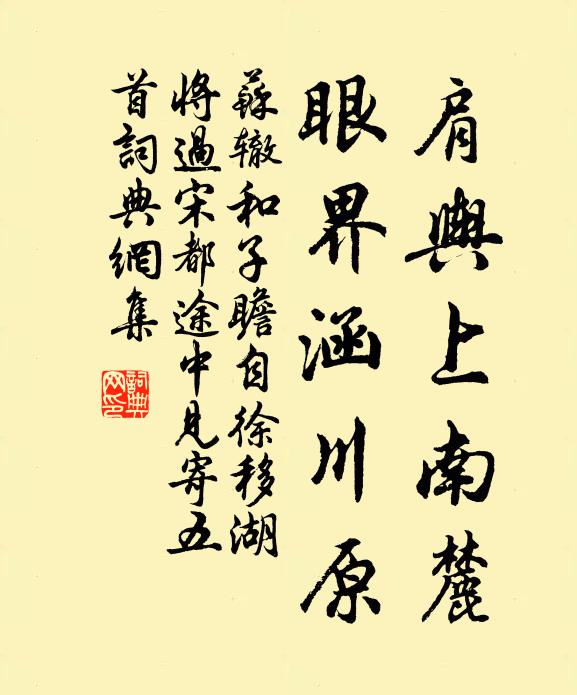 肩輿上南麓
眼界涵川原
蘇辙和子瞻自徐移湖
將過宋都途中見寄五
首詞典網集
詞典网印